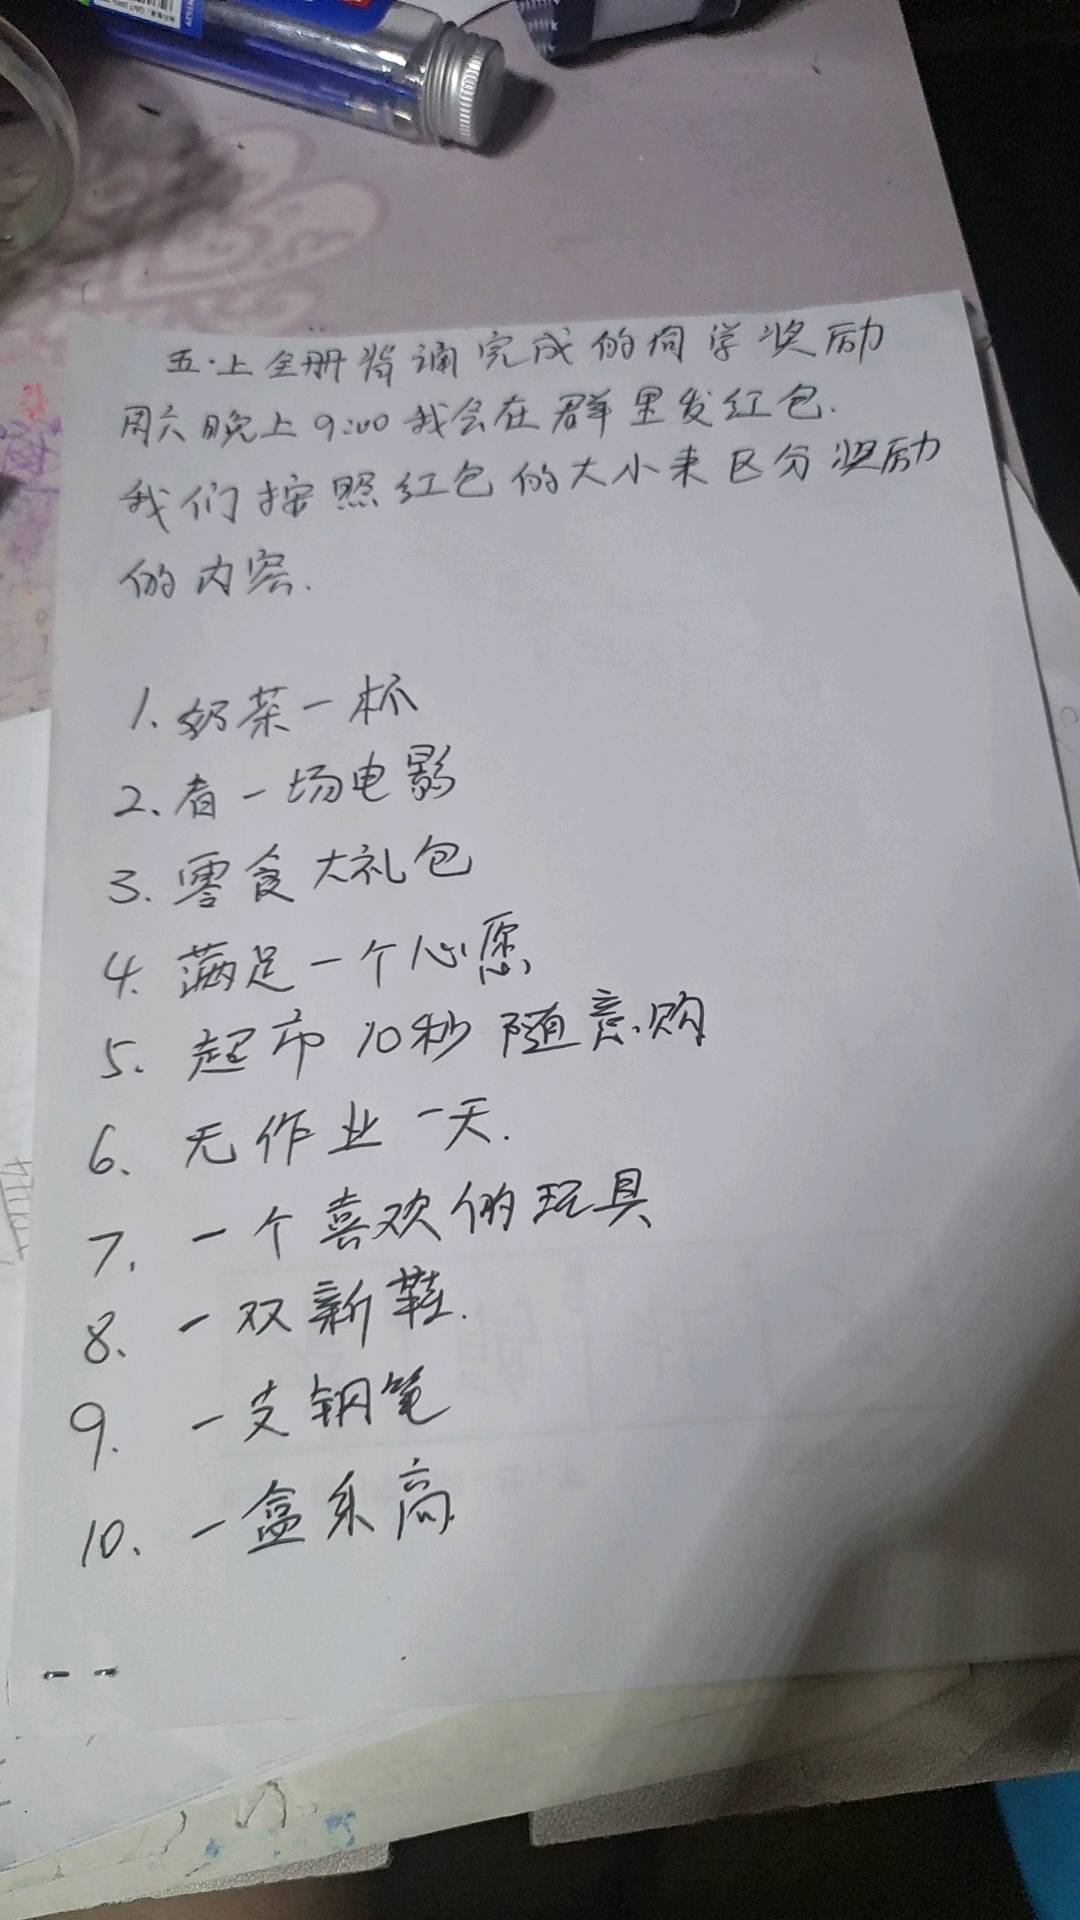 五·上全册背诵完成的同学奖励
周六晚上9:00我会在群里发红包.
我们按照红包的大小来区分奖励
的内容.
1. 奶茶一杯
2、看一场电影
3. 零食大礼包
4. 满足一个心愿
5. 超市10秒随意购
6、无作业一天.
7. 一个喜欢的玩具
8、一双新鞋.
9. 一支钢笔
10、一盒乐高